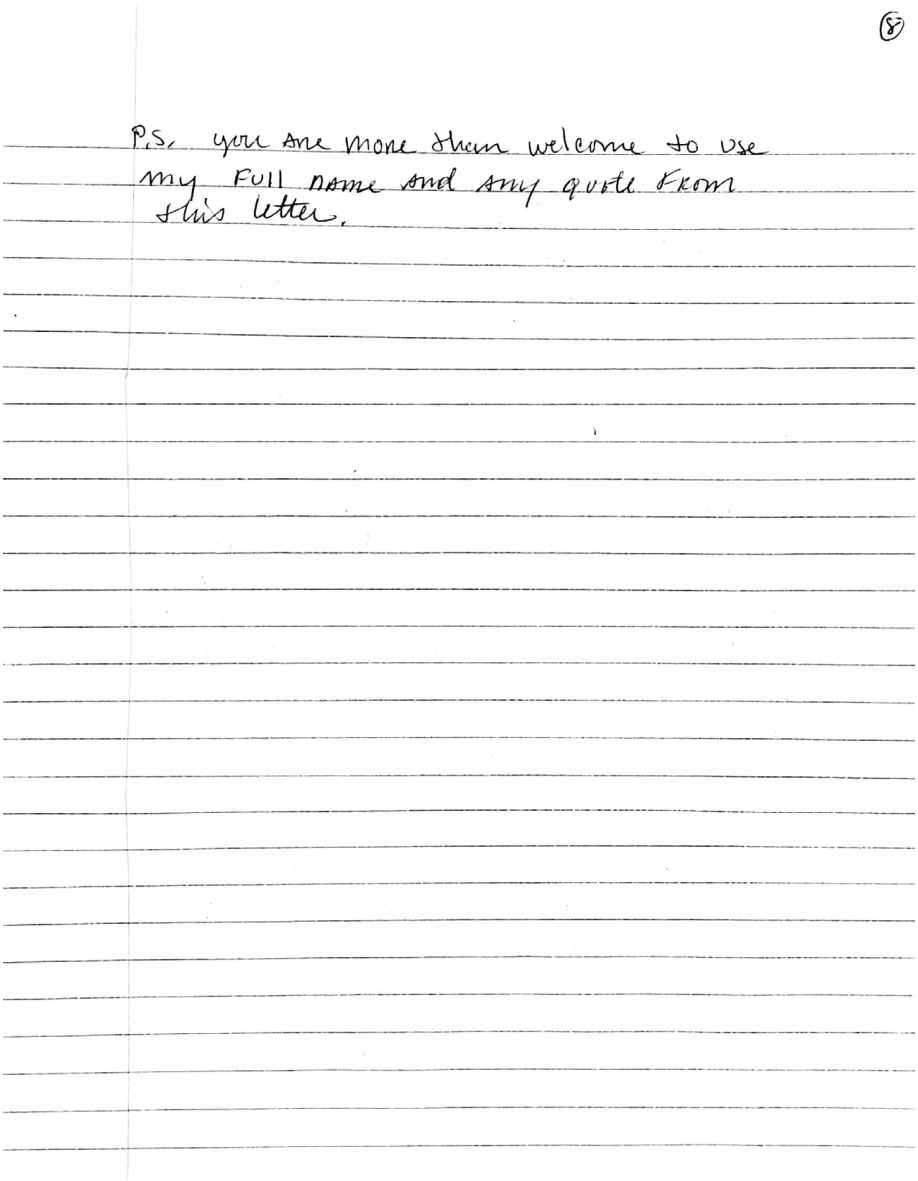 8
P.S. you are more than welcome to use
my Full name and any quote From
this letter.